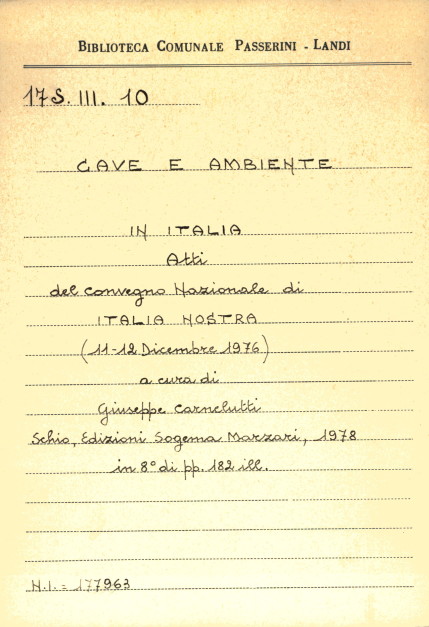 BIBLIOTECA COMUNALE PASSERINI - LANDI
17S. III. 10
CAVE E AMBIENTE
IN ITALIA
Atti
del Convegno Nazionale di
ITALIA NOSTRA
(11-12 Dicembre 1976)
a cura di
Giuseppe Carnelutti
Schio, Edizioni Sogema Marzari, 1978
in 8° di pp. 182 ill.
N.I. = 177963